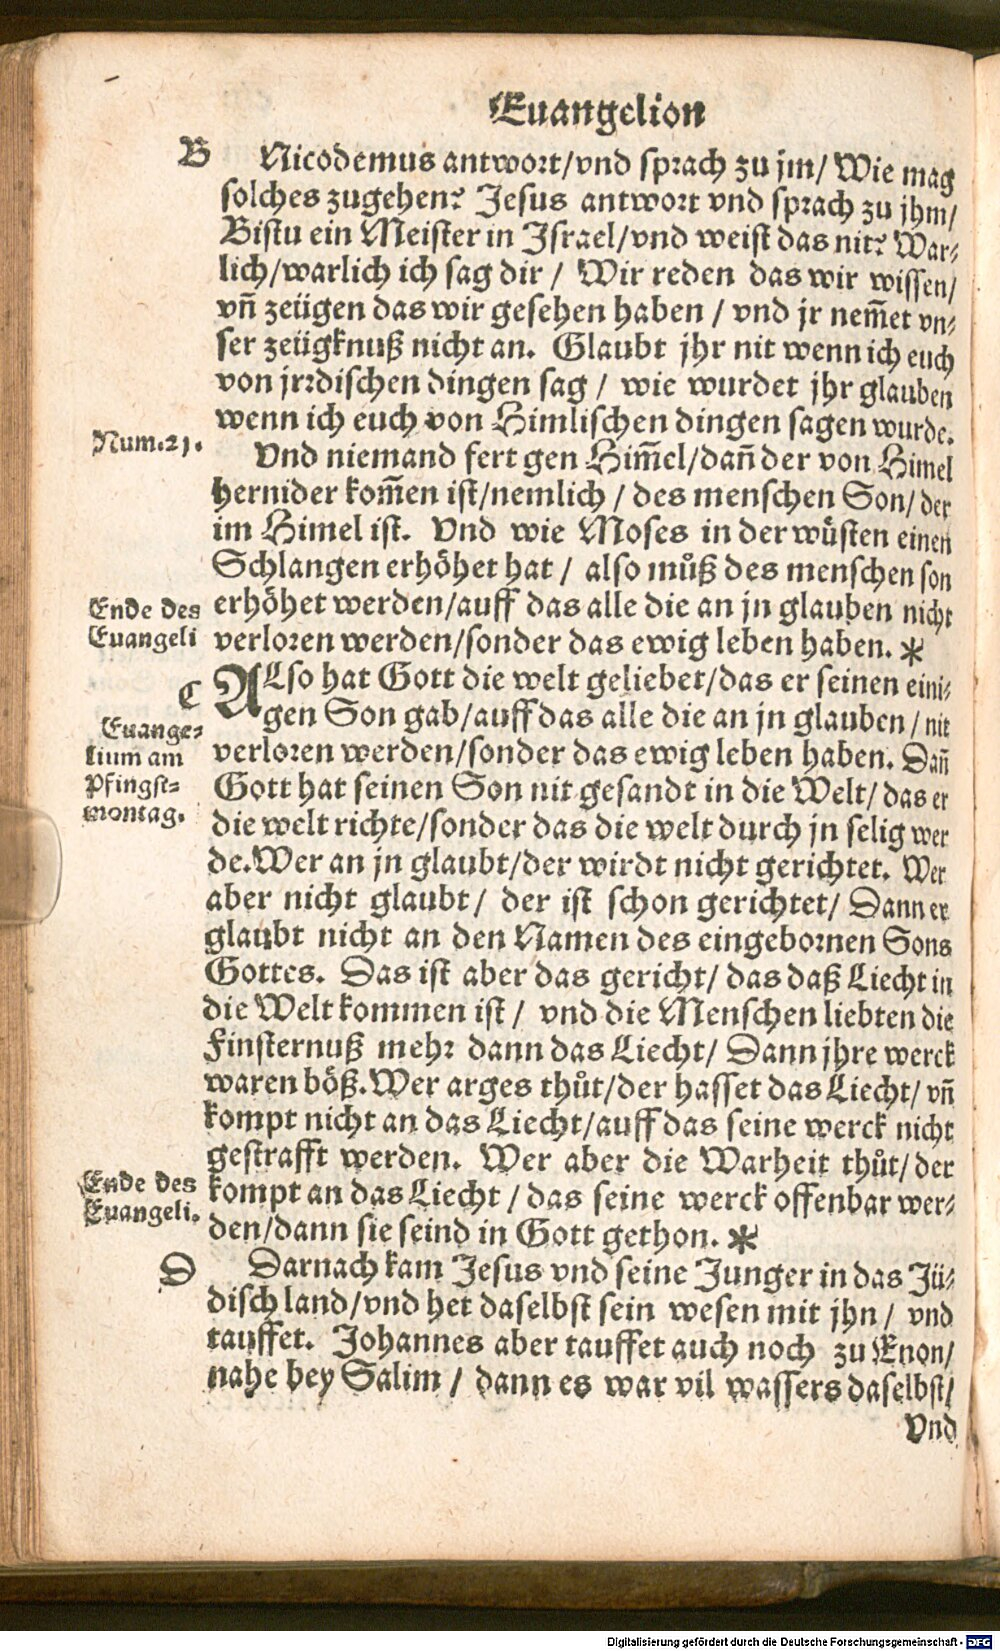 Euangelion
B
Nicodemus antwort/vnd sprach zu jm/ Wie mag
solches zugehen? Jesus antwort vnd sprach zu jhm/
Bistu ein Meister in Israel/vnd weist das nit? War⸗
lich/warlich ich sag dir / Wir reden das wir wissen/
vn̄ zeügen das wir gesehen haben / vnd jr nem̄et vn⸗
ser zeügknuß nicht an. Glaubt jhr nit wenn ich euch
von jrrdischen dingen sag / wie wurdet jhr glauben
wenn ich euch von Himlischen dingen sagen wurde.
Num.21.
Vnd niemand fert gen Him̄el/dan̄ der von Himel
hernider kom̄en ist/nemlich / des menschen Son/ der
im Himel ist. Vnd wie Moses in der wüsten einen
Schlangen erhöhet hat / also můß des menschen son
erhöhet werden/auff das alle die an jn glauben nicht
verloren werden/sonder das ewig leben haben. *
Ende des
Euangeli
C
Euange⸗
lium am
Pfingst⸗
montag.
ALso hat Gott die welt geliebet/das er seinen eini⸗
gen Son gab/auff das alle die an jn glauben / nit
verloren werden/sonder das ewig leben haben. Dan̄
Gott hat seinen Son nit gesandt in die Welt/ das er
die welt richte/sonder das die welt durch jn selig wer
de. Wer an jn glaubt/der wirdt nicht gerichtet. Wer
aber nicht glaubt/ der ist schon gerichtet/ Dann er
glaubt nicht an den Namen des eingebornen Sons
Gottes. Das ist aber das gericht/ das daß Liecht in
die Welt kommen ist / vnd die Menschen liebten die
Finsternuß mehr dann das Liecht/ Dann jhre werck
waren böß. Wer arges thůt/der hasset das Liecht/ vn̄
kompt nicht an das Liecht/auff das seine werck nicht
gestrafft werden. Wer aber die Warheit thůt/ der
kompt an das Liecht / das seine werck offenbar wer⸗
den/dann sie seind in Gott gethon. *
Ende des
Euangeli.
D
Darnach kam Jesus vnd seine Junger in das Jü⸗
disch land/vnd het daselbst sein wesen mit jhn / vnd
tauffet. Johannes aber tauffet auch noch zu Enon/
nahe bey Salim / dann es war vil wassers daselbst/
Vnd
Digitalisierung gefördert durch die Deutsche Forschungsgemeinschaft - DFG